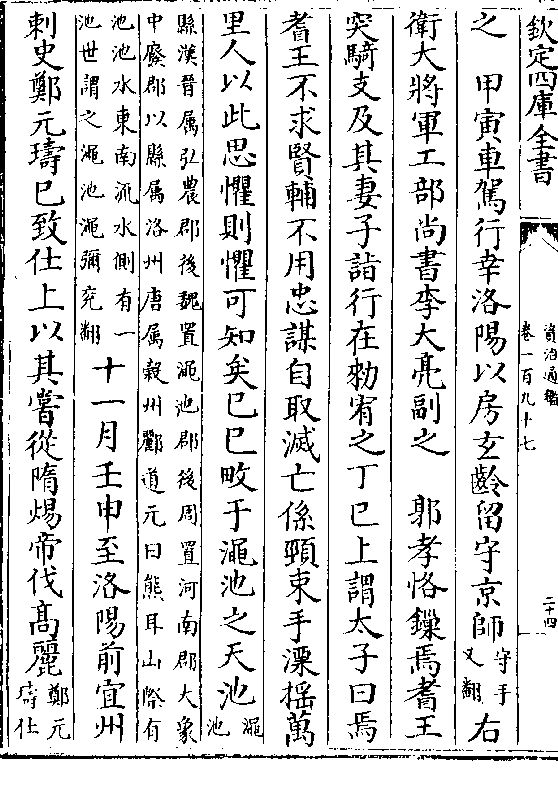 欽定四庫全書
資治通鑑
卷一百九十七
二十四
之　甲寅車駕行幸洛陽以房玄齡留守京師守手又翻右
衛大將軍工部尚書李大亮副之　郭孝恪鏁焉耆王
突騎支及其妻子詣行在勑宥之丁巳上謂太子曰焉
耆王不求賢輔不用忠謀自取滅亡係頸束手漂揺萬
里人以此思懼則懼可知矣己巳畋于澠池之天池澠池
縣漢晉屬弘農郡後魏置澠池郡後周置河南郡大象
中廢郡以縣屬洛州唐屬穀州酈道元曰熊耳山際有
池池水東南流水側有一
池世謂之澠池澠彌兖翻十一月壬申至洛陽前宜州
刺史鄭元璹已致仕上以其嘗從隋煬帝伐髙麗鄭元璹仕